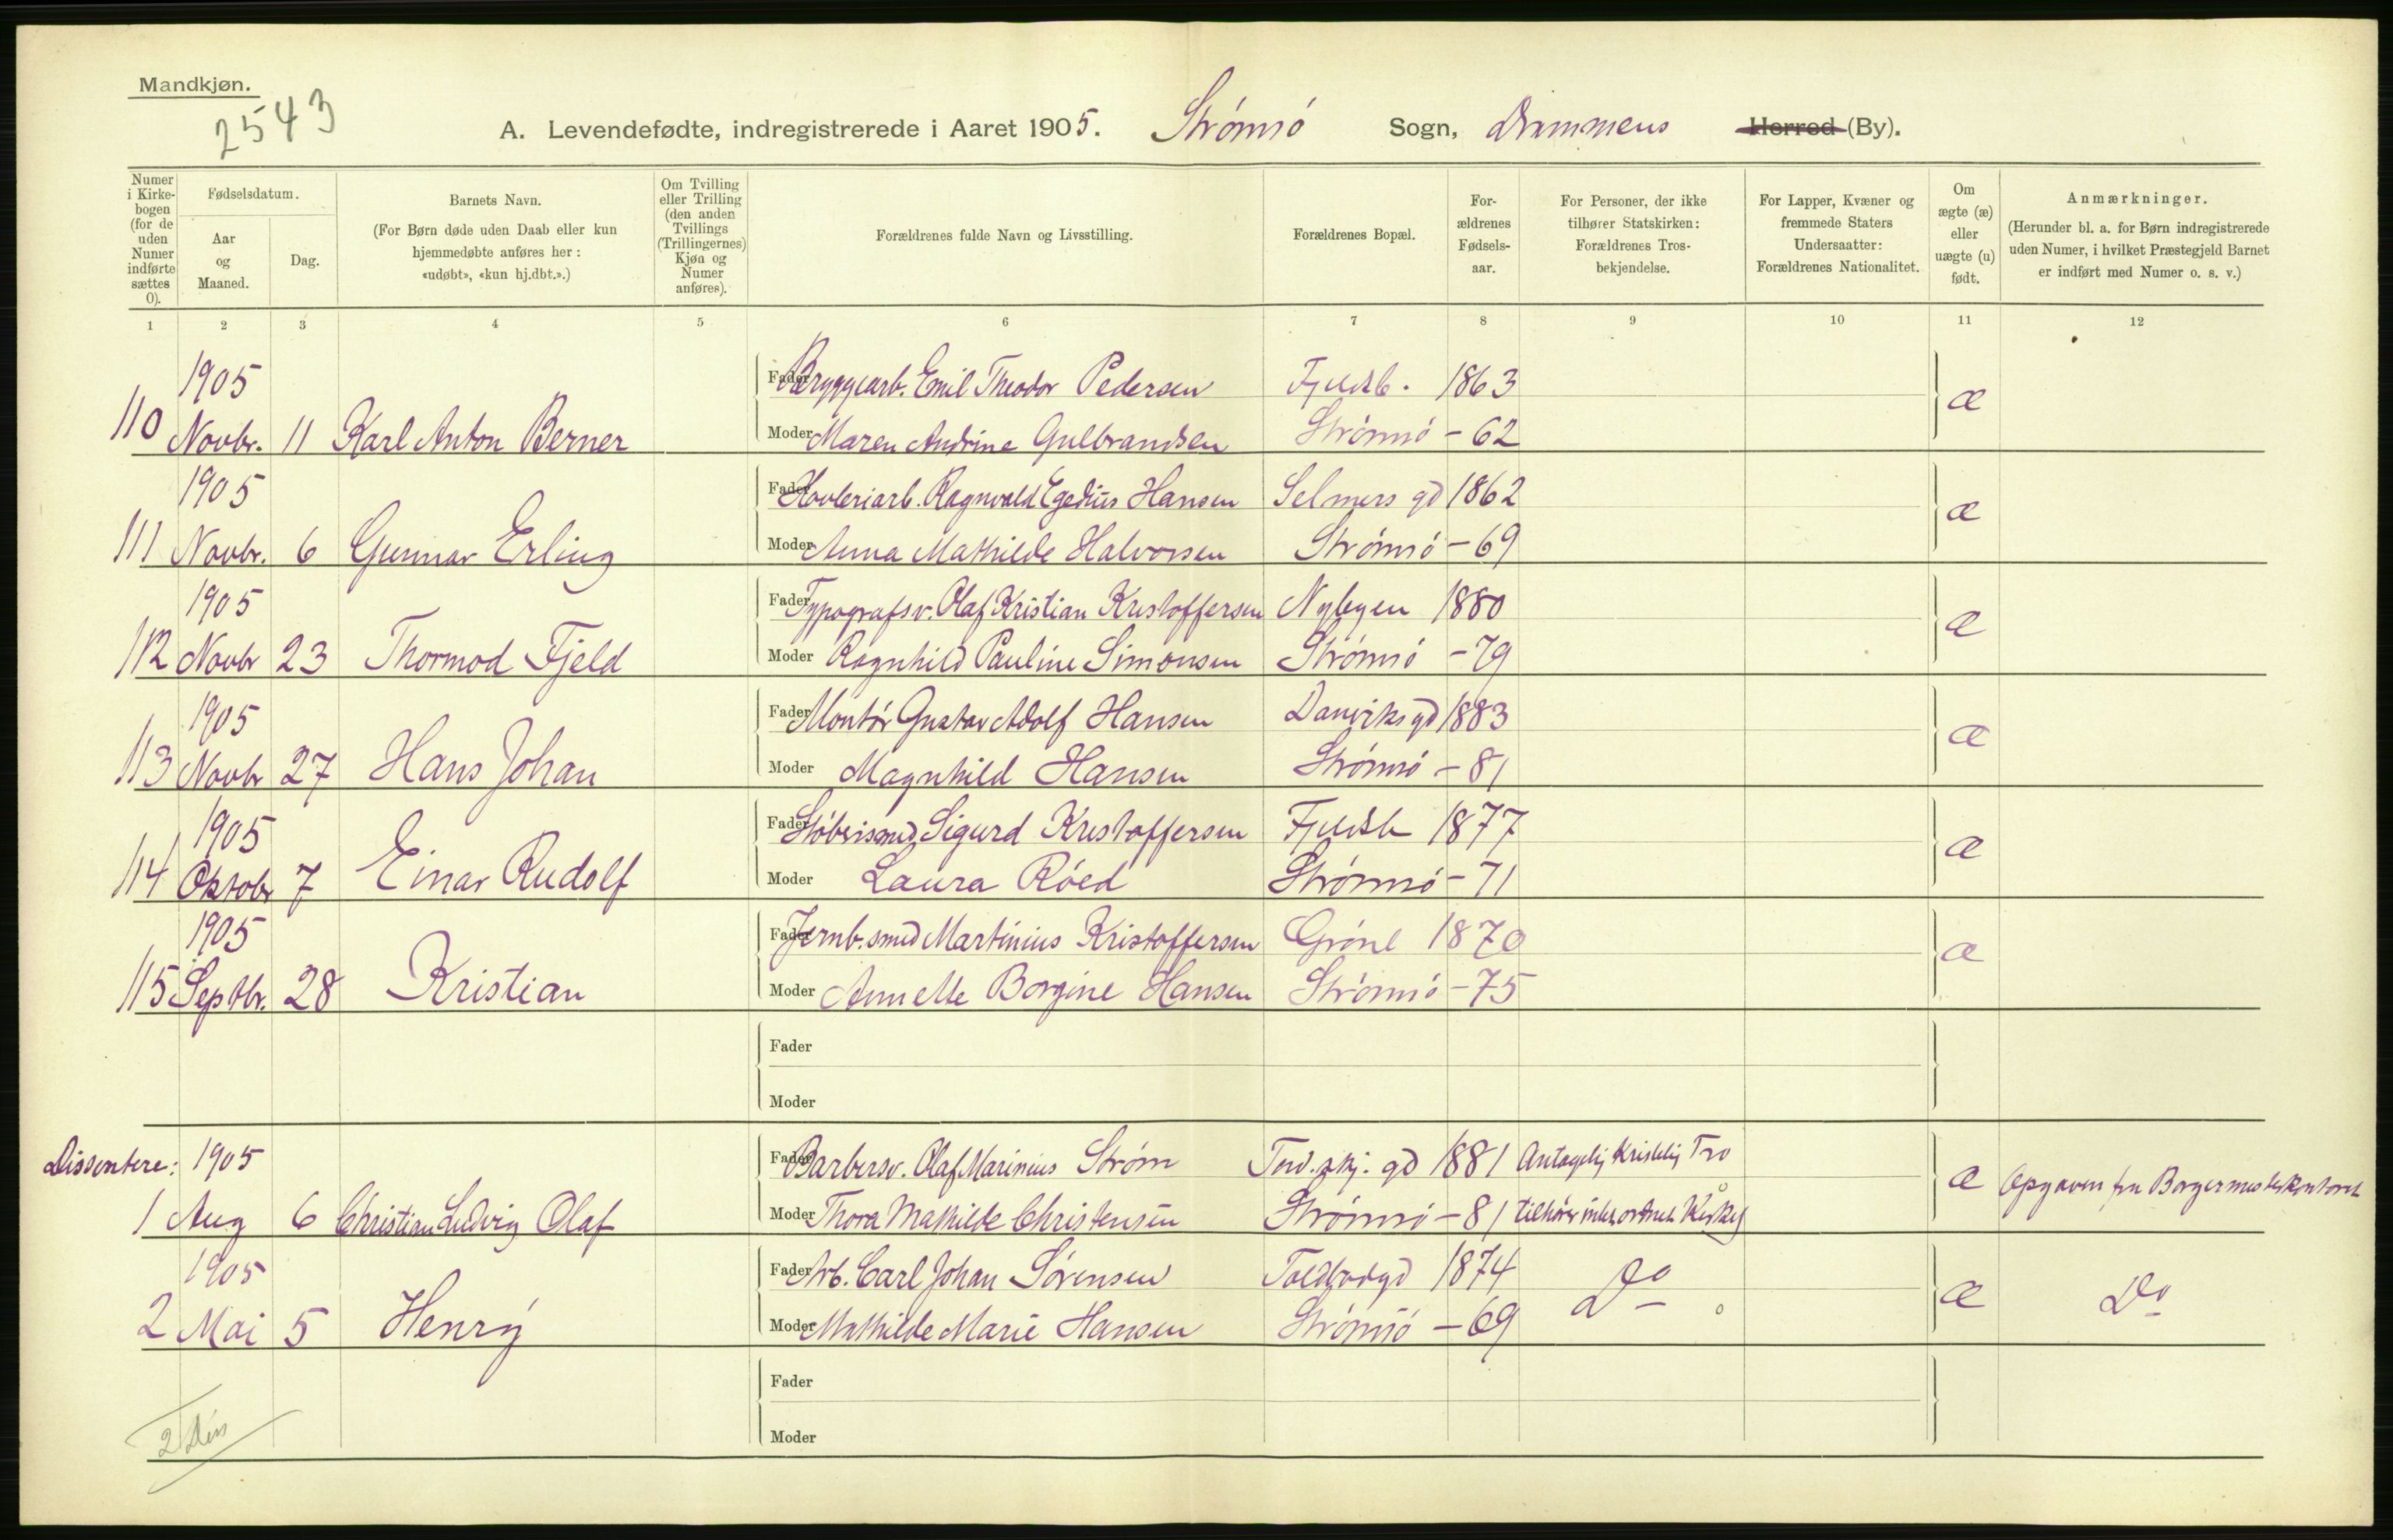 Mandkjøn.
2543
A. Levendefødte, indregistrerede i Aaret 1905. Strømsø Sogn, Drammens Herred (By).
Numer i Kirkebogen (for de uden Numer indførte sættes 0).
Fødselsdatum.
Aar og Maaned.
Dag.
Barnets Navn.
(For Børn døde uden Daab eller kun hjemmedøbte anføres her: «udøbt», «kun hj.dbt.».)
Om Tvilling eller Trilling (den anden Tvillings (Trillingernes) Kjøn og Numer anføres).
Forældrenes fulde Navn og Livsstilling.
Forældrenes Bopæl.
Forældrenes Fødselsaar.
For Personer, der ikke tilhører Statskirken: Forældrenes Trosbekjendelse.
For Lapper, Kvæner og fremmede Staters Undersaatter: Forældrenes Nationalitet.
Om ægte (æ) eller uægte (u) født.
Anmærkninger.
(Herunder bl. a. for Børn indregistrerede uden Numer, i hvilket Præstegjeld Barnet er indført med Numer o. s. v.)
1 2 3 4 5 6 7 8 9 10 11 12
1905 Fader Bryggearb. Emil Theodor Pedersen Fjeldsb. 1863 æ
110 Novbr. 11 Karl Anton Berner Moder Maren Andrine Gulbrandsen Strømsø - 62
1905 Fader Høvleriarb. Ragnvald Egedius Hansen Selmers gd 1862 æ
111 Novbr. 6 Gunnar Erling Moder Anna Mathilde Halvorsen Strømsø - 69
1905 Fader Typografsv. Olaf Kristian Kristoffersen Nybyen 1880 æ
112 Novbr 23 Thormod Fjeld Moder Ragnhild Pauline Simonsen Strømsø - 79
1905 Fader Montør Gustav Adolf Hansen Danviks gd 1883 æ
113 Novbr 27 Hans Johan Moder Magnhild Hansen Strømsø - 81
1905 Fader Støberismed Sigurd Kristoffersen Fjeldsb 1877 æ
114 Oktobr 7 Einar Rudolf Moder Laura Róed Strømsø - 71
1905 Fader Jernb.smed Martinius Kristoffersen Grønl 1870 æ
115 Septbr. 28 Kristian Moder Annette Borgine Hansen Strømsø - 75
Fader
Moder
Dissentere: 1905 Fader Barbersv. Olaf Marinius Strøm Tord.skj. gd 1881 Antagelig Kristelig Tro æ Opgaven fra Borgermesterkontoret
1 Aug 6 Christian Ludvig Olaf Moder Thora Mathilde Christensen Strømsø - 81 tilhører intet ordnet Kirkes
1905 Fader Arb. Carl Johan Sørensen Toldbodgd 1874 Do æ Do
2 Mai 5 Henry Moder Mathilde Marie Hansen Strømsø - 69
Fader
Moder
2 Diss